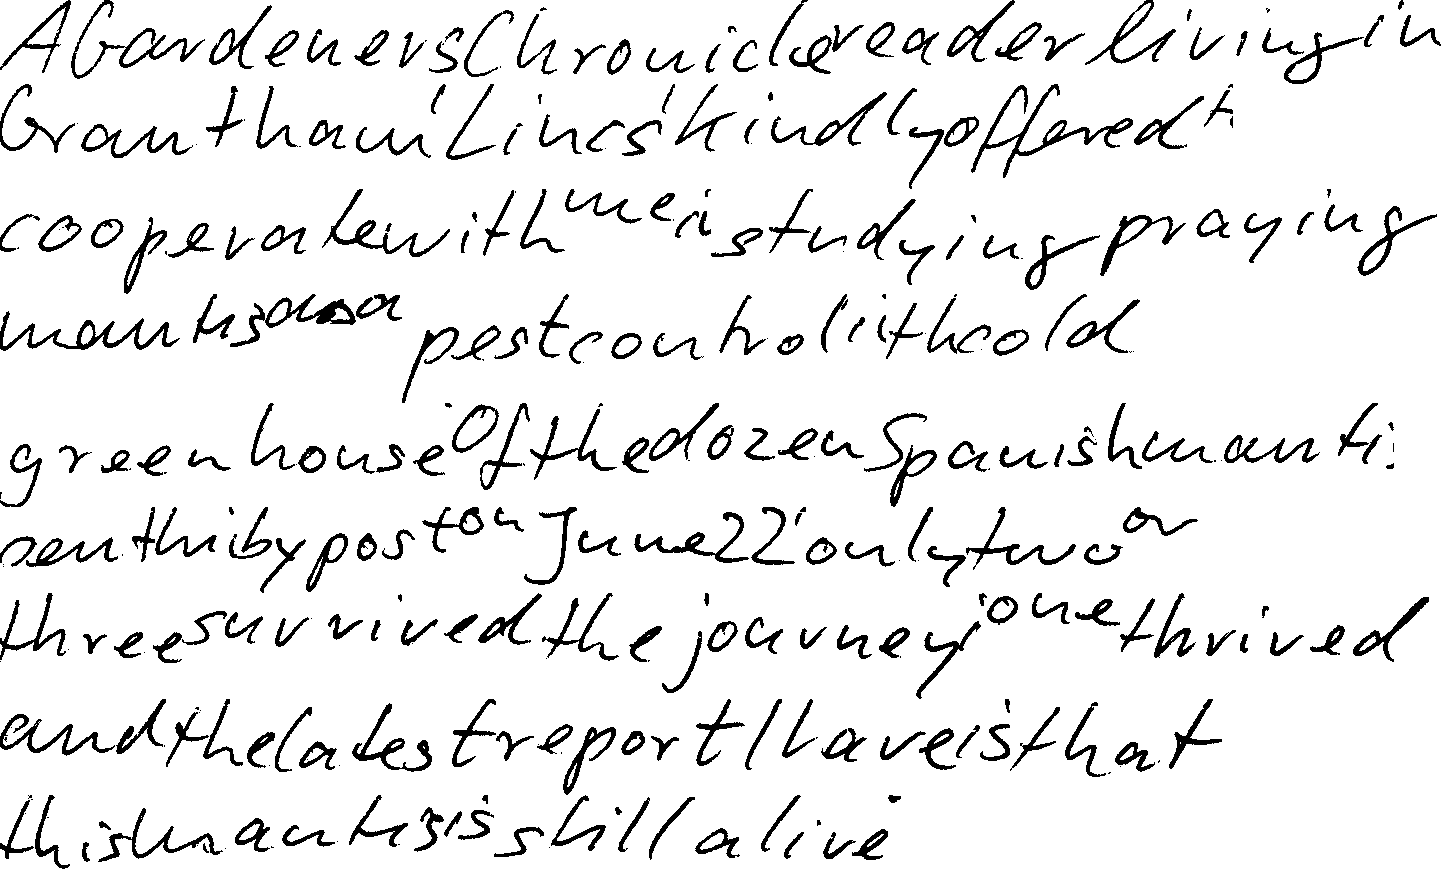 A Gardeners Chronicle reader living in
Grantham 'Lincs' kindly offered to
cooperate with me in studying praying
mantis as a pest control in the cold
greenhouse Of the dozen Spanish mantis
sent him by post on June 22' only two or
three survived the journey; one thrived
and the latest report I have is that
this mantis is still alive